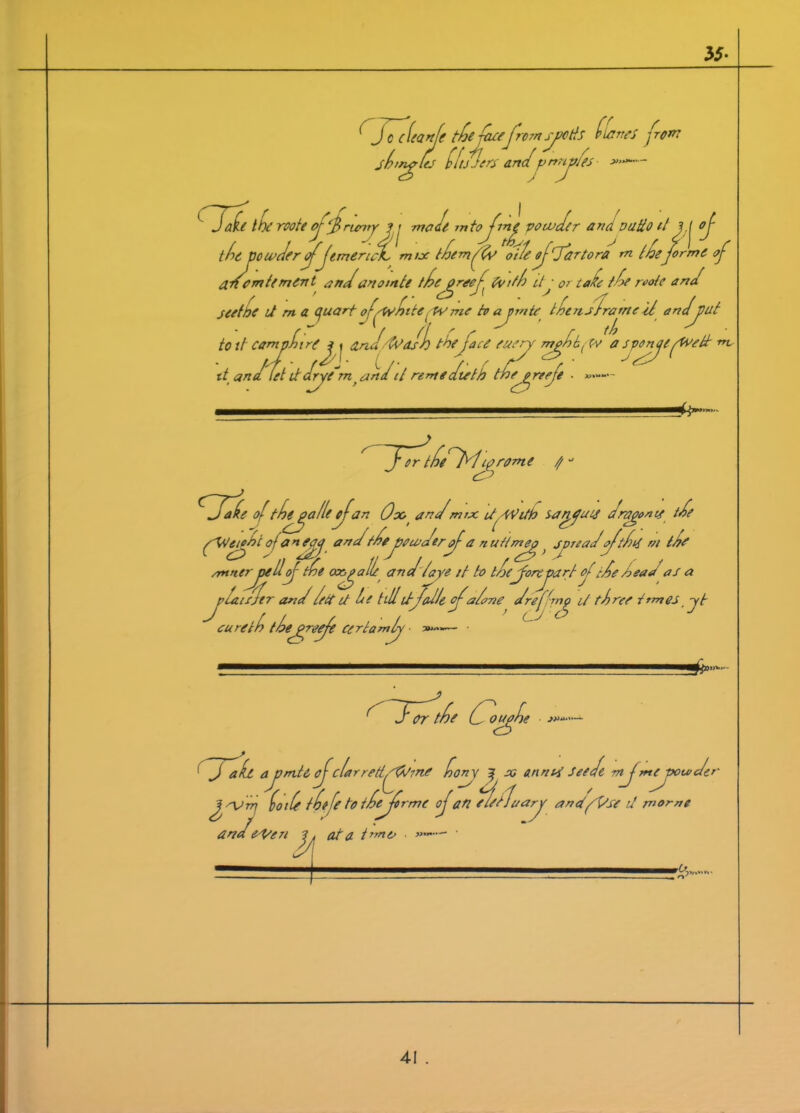 35.
To cleanse the face from spotts blanes from
shingles blisters and pimples
Take the roote of Brieony ʒ j made into fine powder and putto it ʒ j of
the powder of femerick mix them wth oile of Tartora in the forme of
an ointement and anointe the greef with it; or take the roote and
seethe it in a quart of white wine to a pinte then straine it and put
to it camphire ʒ j and wash the face euery night wth a sponge wett in
it and let it drye in, and it remedieth the greefe.
For the Migrome
Take of the galle of an Ox, and mix it with sanguis dragonis the
weight of an egg and the powder of a nuttmeg, spread of this in the
inner pell of the ox galle and laye it to the forepart of the head as a
plaister and lett it be till it falle of alone dressing it three times, yt
cureth the greefe certainly.
For the Coughe
Take a pinte of clarrett wine hony ʒ x annis seede in fine powder
ʒ viij boile these to the forme of an electuary and vse it morne
and even ʒ j at a time.
41.